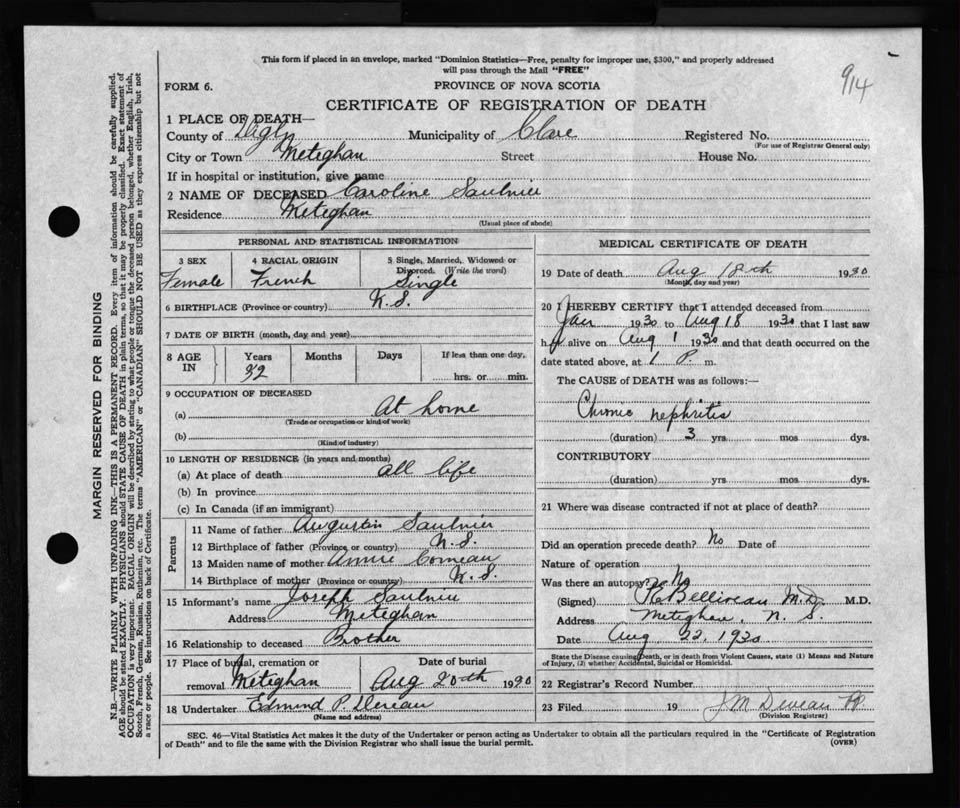 This form if placed in an envelope, marked "Dominion Statistics—Free, penalty for improper use, $300," and properly addressed
will pass through the Mail "FREE"
914
FORM 6.
PROVINCE OF NOVA SCOTIA
CERTIFICATE OF REGISTRATION OF DEATH
1 PLACE OF DEATH—
County of Digby Municipality of Clare Registered No.
(For use of Registrar General only)
City or Town Meteghan Street House No.
If in hospital or institution, give name
2 NAME OF DECEASED Caroline Saulnier
Residence Meteghan
(Usual place of abode)
PERSONAL AND STATISTICAL INFORMATION
3 SEX 4 RACIAL ORIGIN 5 Single, Married, Widowed or
Divorced. (Write the word)
Female French Single
6 BIRTHPLACE (Province or country) N.S.
7 DATE OF BIRTH (month, day and year)
8 AGE IN Years Months Days If less than one day,
hrs. or min.
9 OCCUPATION OF DECEASED
(a) At home
(Trade or occupation or kind of work)
(b)
(Kind of industry)
10 LENGTH OF RESIDENCE (in years and months)
(a) At place of death all life
(b) In province
(c) In Canada (if an immigrant)
Parents
11 Name of father Augustin Saulnier
12 Birthplace of father (Province or country) N.S.
13 Maiden name of mother Annie Comeau
14 Birthplace of mother (Province or country) N.S.
15 Informant's name Joseph Saulnier
Address Meteghan
16 Relationship to deceased Brother
17 Place of burial, cremation or Date of burial
removal Meteghan Aug 20th 1930
18 Undertaker Edmund P. Deveau
(Name and address)
MEDICAL CERTIFICATE OF DEATH
19 Date of death Aug 18th 1930
(Month, day and year)
20 I HEREBY CERTIFY that I attended deceased from
Jan 1930 to Aug 18 1930 that I last saw
her alive on Aug 1 1930 and that death occurred on the
date stated above, at 1 P. m.
The CAUSE of DEATH was as follows:—
Chronic nephritis
(duration) 3 yrs. mos. dys.
CONTRIBUTORY
(duration) yrs. mos. dys.
21 Where was disease contracted if not at place of death?
Did an operation precede death? No Date of
Nature of operation
Was there an autopsy? No
(Signed) Belliveau M.D. M.D.
Address Meteghan, N.S.
Date Aug 22, 1930
State the Disease causing Death, or in death from Violent Causes, state (1) Means and Nature
of Injury, (2) whether Accidental, Suicidal or Homicidal.
22 Registrar's Record Number
23 Filed 19 J M Deveau
(Division Registrar)
SEC. 46—Vital Statistics Act makes it the duty of the Undertaker or person acting as Undertaker to obtain all the particulars required in the "Certificate of Registration
of Death" and to file the same with the Division Registrar who shall issue the burial permit. (OVER)
MARGIN RESERVED FOR BINDING
N.B.—WRITE PLAINLY WITH UNFADING INK—THIS IS A PERMANENT RECORD. Every item of information should be carefully supplied.
AGE should be stated EXACTLY. PHYSICIANS should STATE CAUSE OF DEATH in plain terms, so that it may be properly classified. Exact statement of
OCCUPATION is very important. RACIAL ORIGIN will be described by stating to what people or tongue the deceased person belonged, whether English, Irish,
Scotch, French, German, Russian, Ruthenian, etc. The terms "AMERICAN" or "CANADIAN" SHOULD NOT BE USED as they express citizenship but not
a race or people. See instructions on back of Certificate.